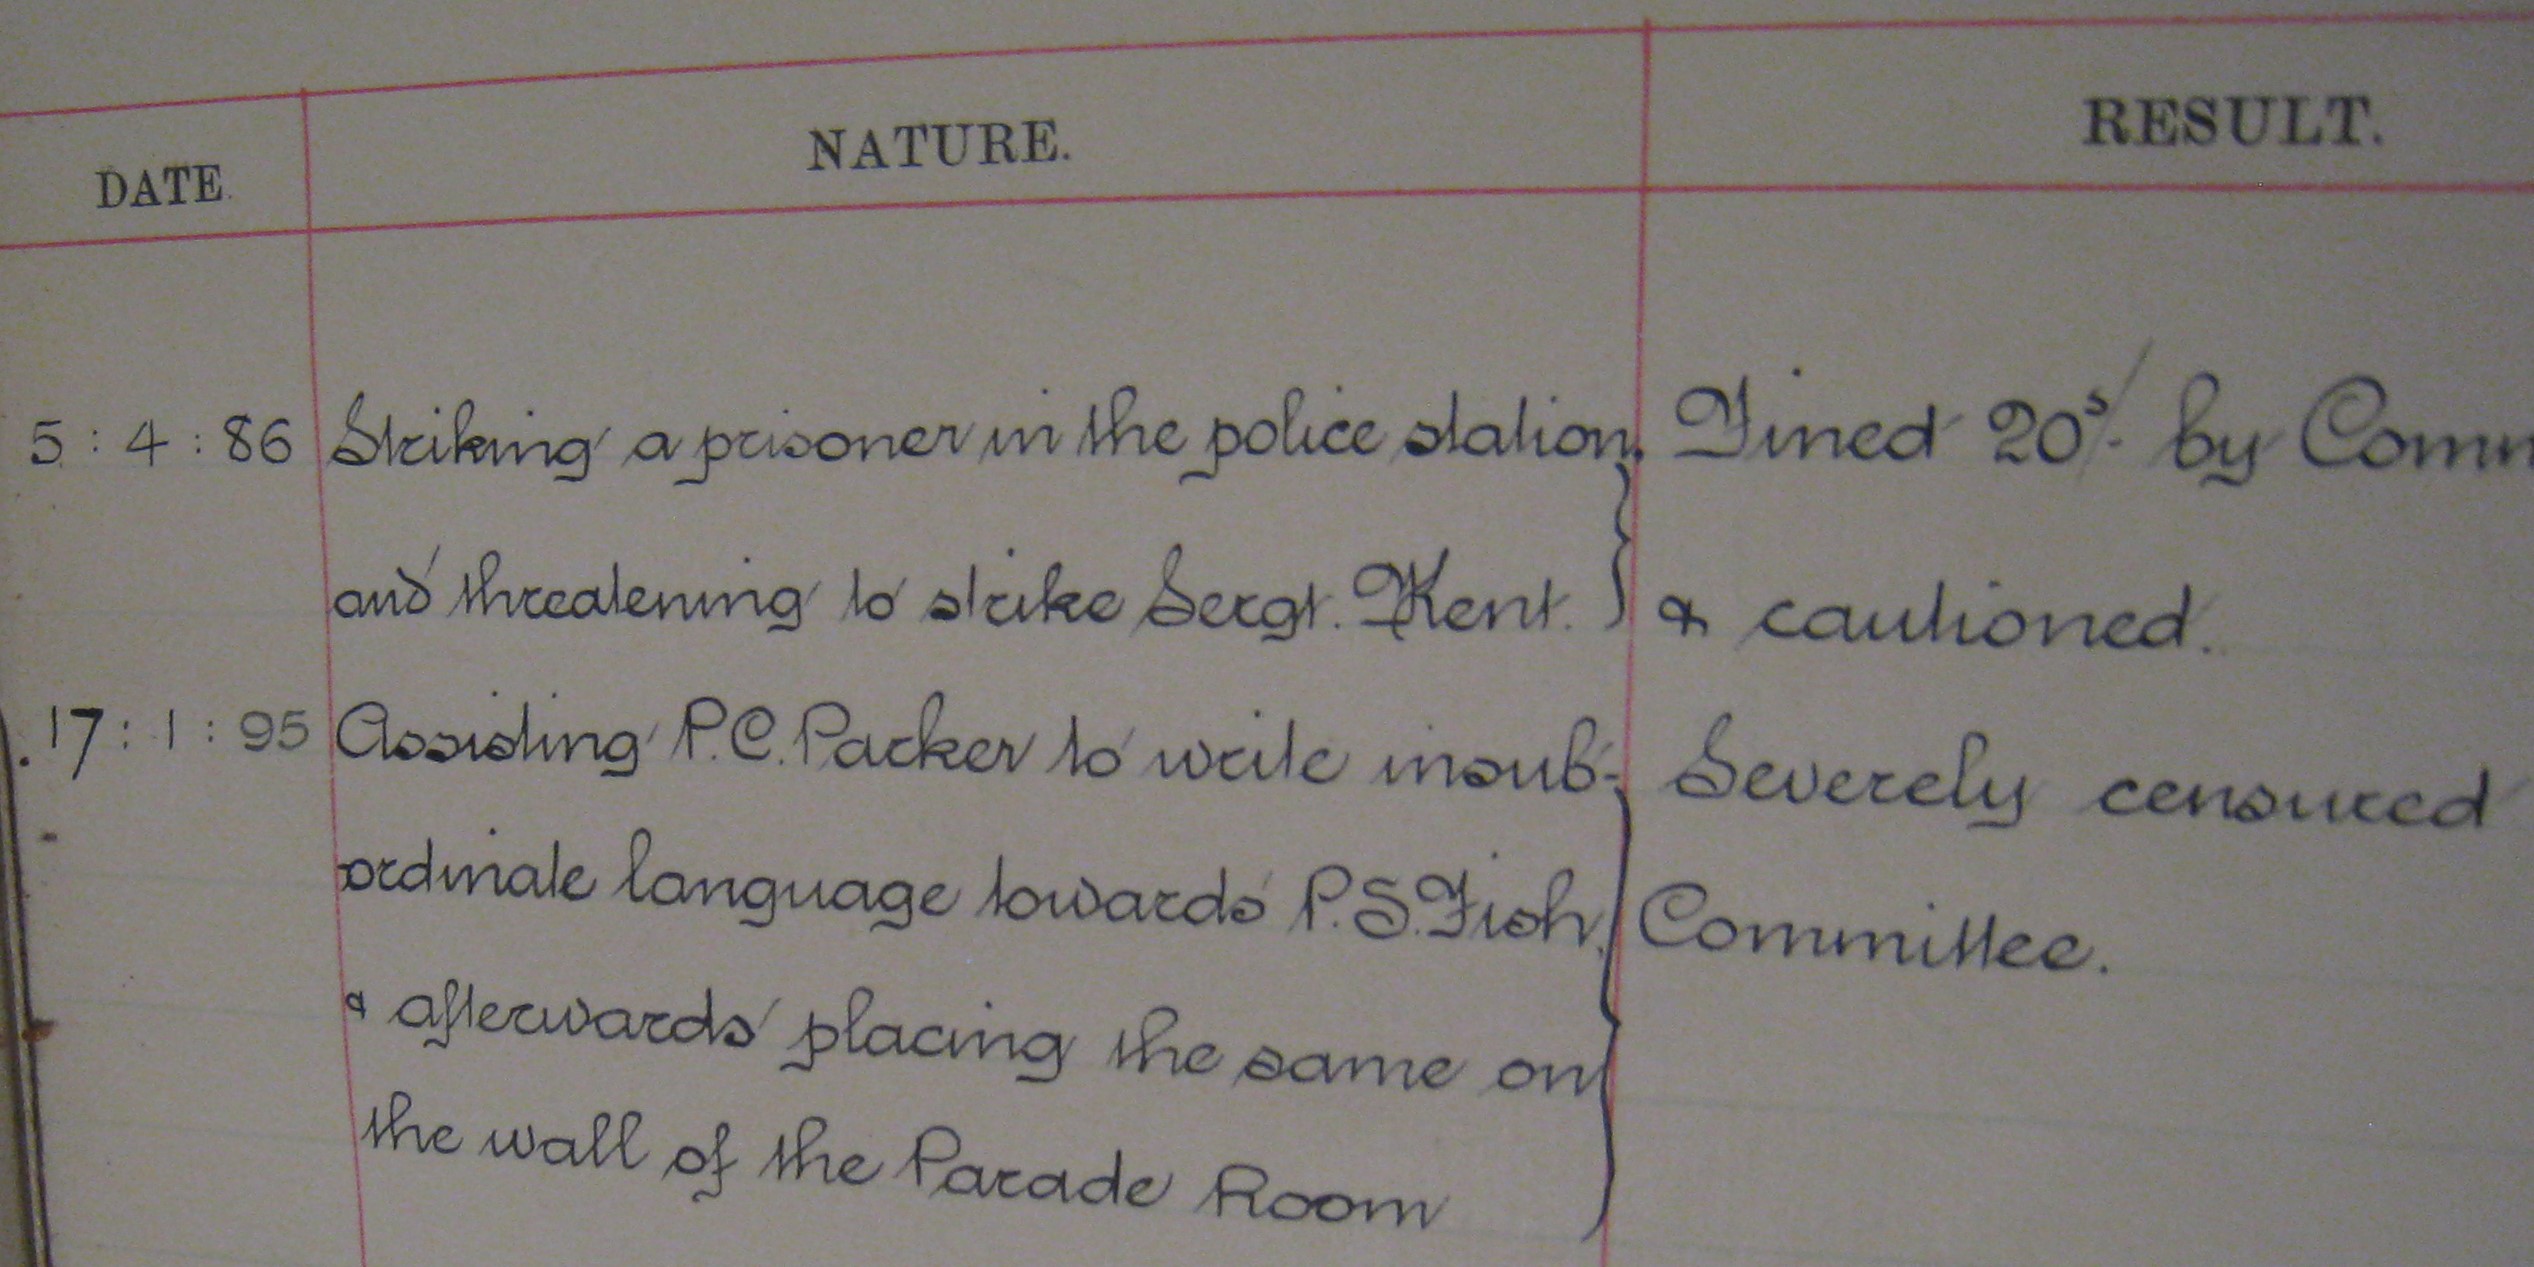 DATE. NATURE. RESULT.
5 : 4 : 86 Striking a prisoner in the police station, Fined 20s/- by Comm
and threatening to strike Sergt. Kent. } & cautioned.
17 : 1 : 95 Assisting P.C. Packer to write insub- Severely censured
ordinate language towards P.S. Fish, Committee.
& afterwards placing the same on
the wall of the Parade Room